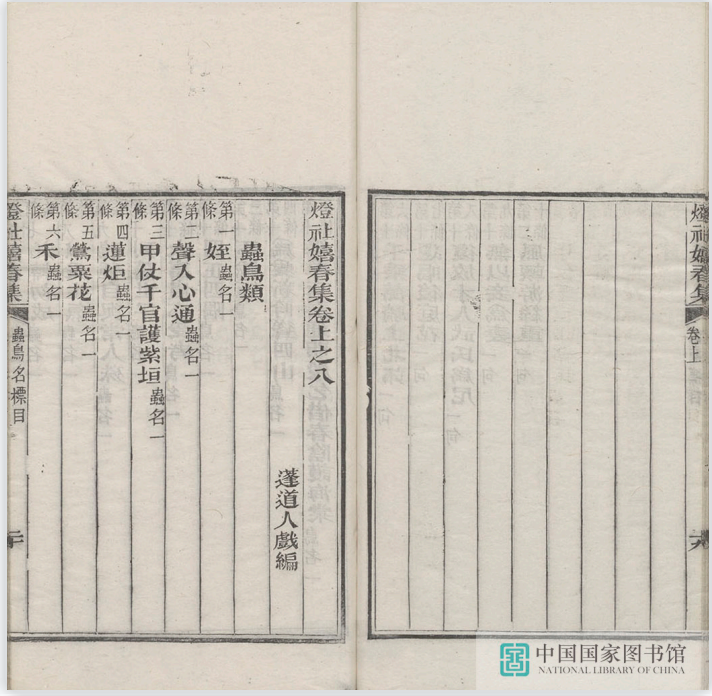 燈社嬉春集 卷上
燈社嬉春集卷上之八
蓬道人戲編
蟲鳥類
第一條 姪 蟲名一
第二條 聲入心通 蟲名一
第三條 甲仗千官護紫垣 蟲名一
第四條 蓮炬 蟲名一
第五條 鶯粟花 蟲名一
第六條 禾 蟲名一
燈社嬉春集 蟲鳥名標目 二十
中国国家图书馆
NATIONAL LIBRARY OF CHINA